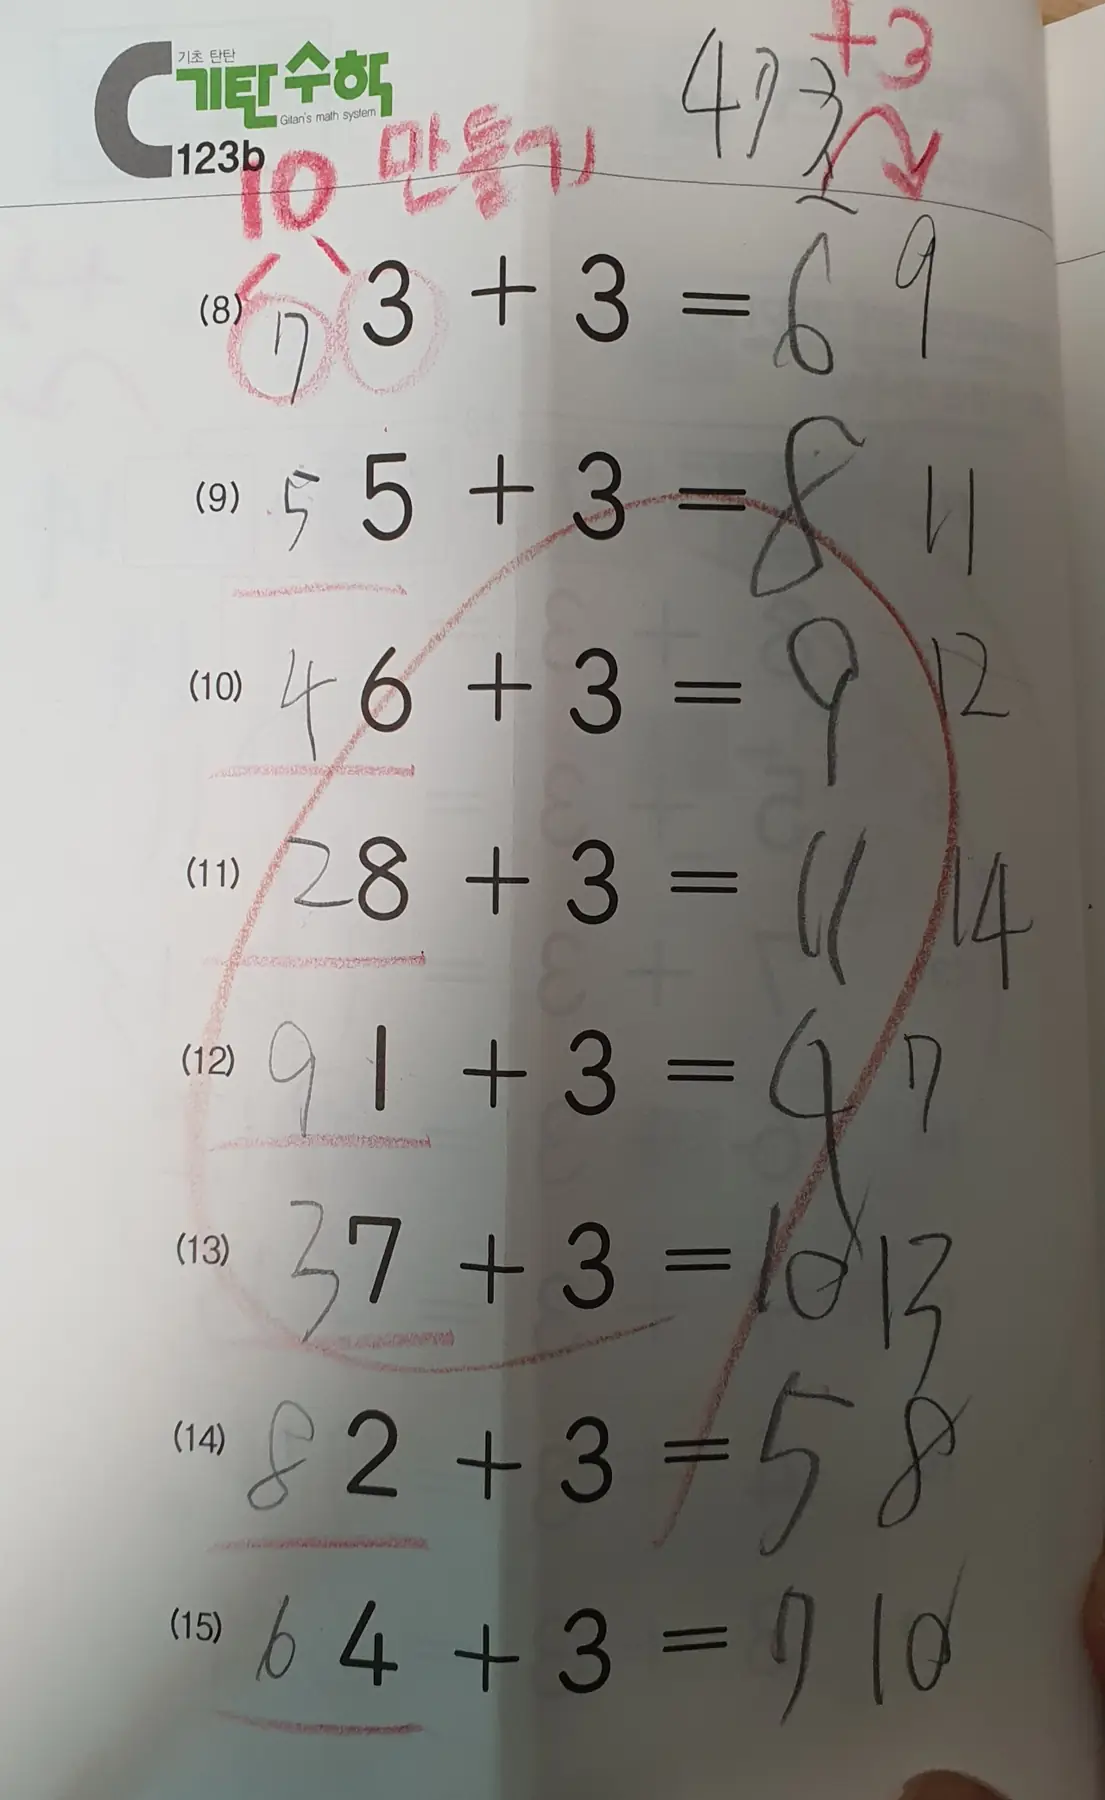 기초 탄탄
기탄수학
Gitan's math system
C 123b
473
2
+3
10 만들기
(8) 7 3 + 3 = 6 9
(9) 5 5 + 3 = 8 11
(10) 4 6 + 3 = 9 12
(11) 2 8 + 3 = 11 14
(12) 9 1 + 3 = 4 7
(13) 3 7 + 3 = 10 13
(14) 8 2 + 3 = 5 8
(15) 6 4 + 3 = 7 10